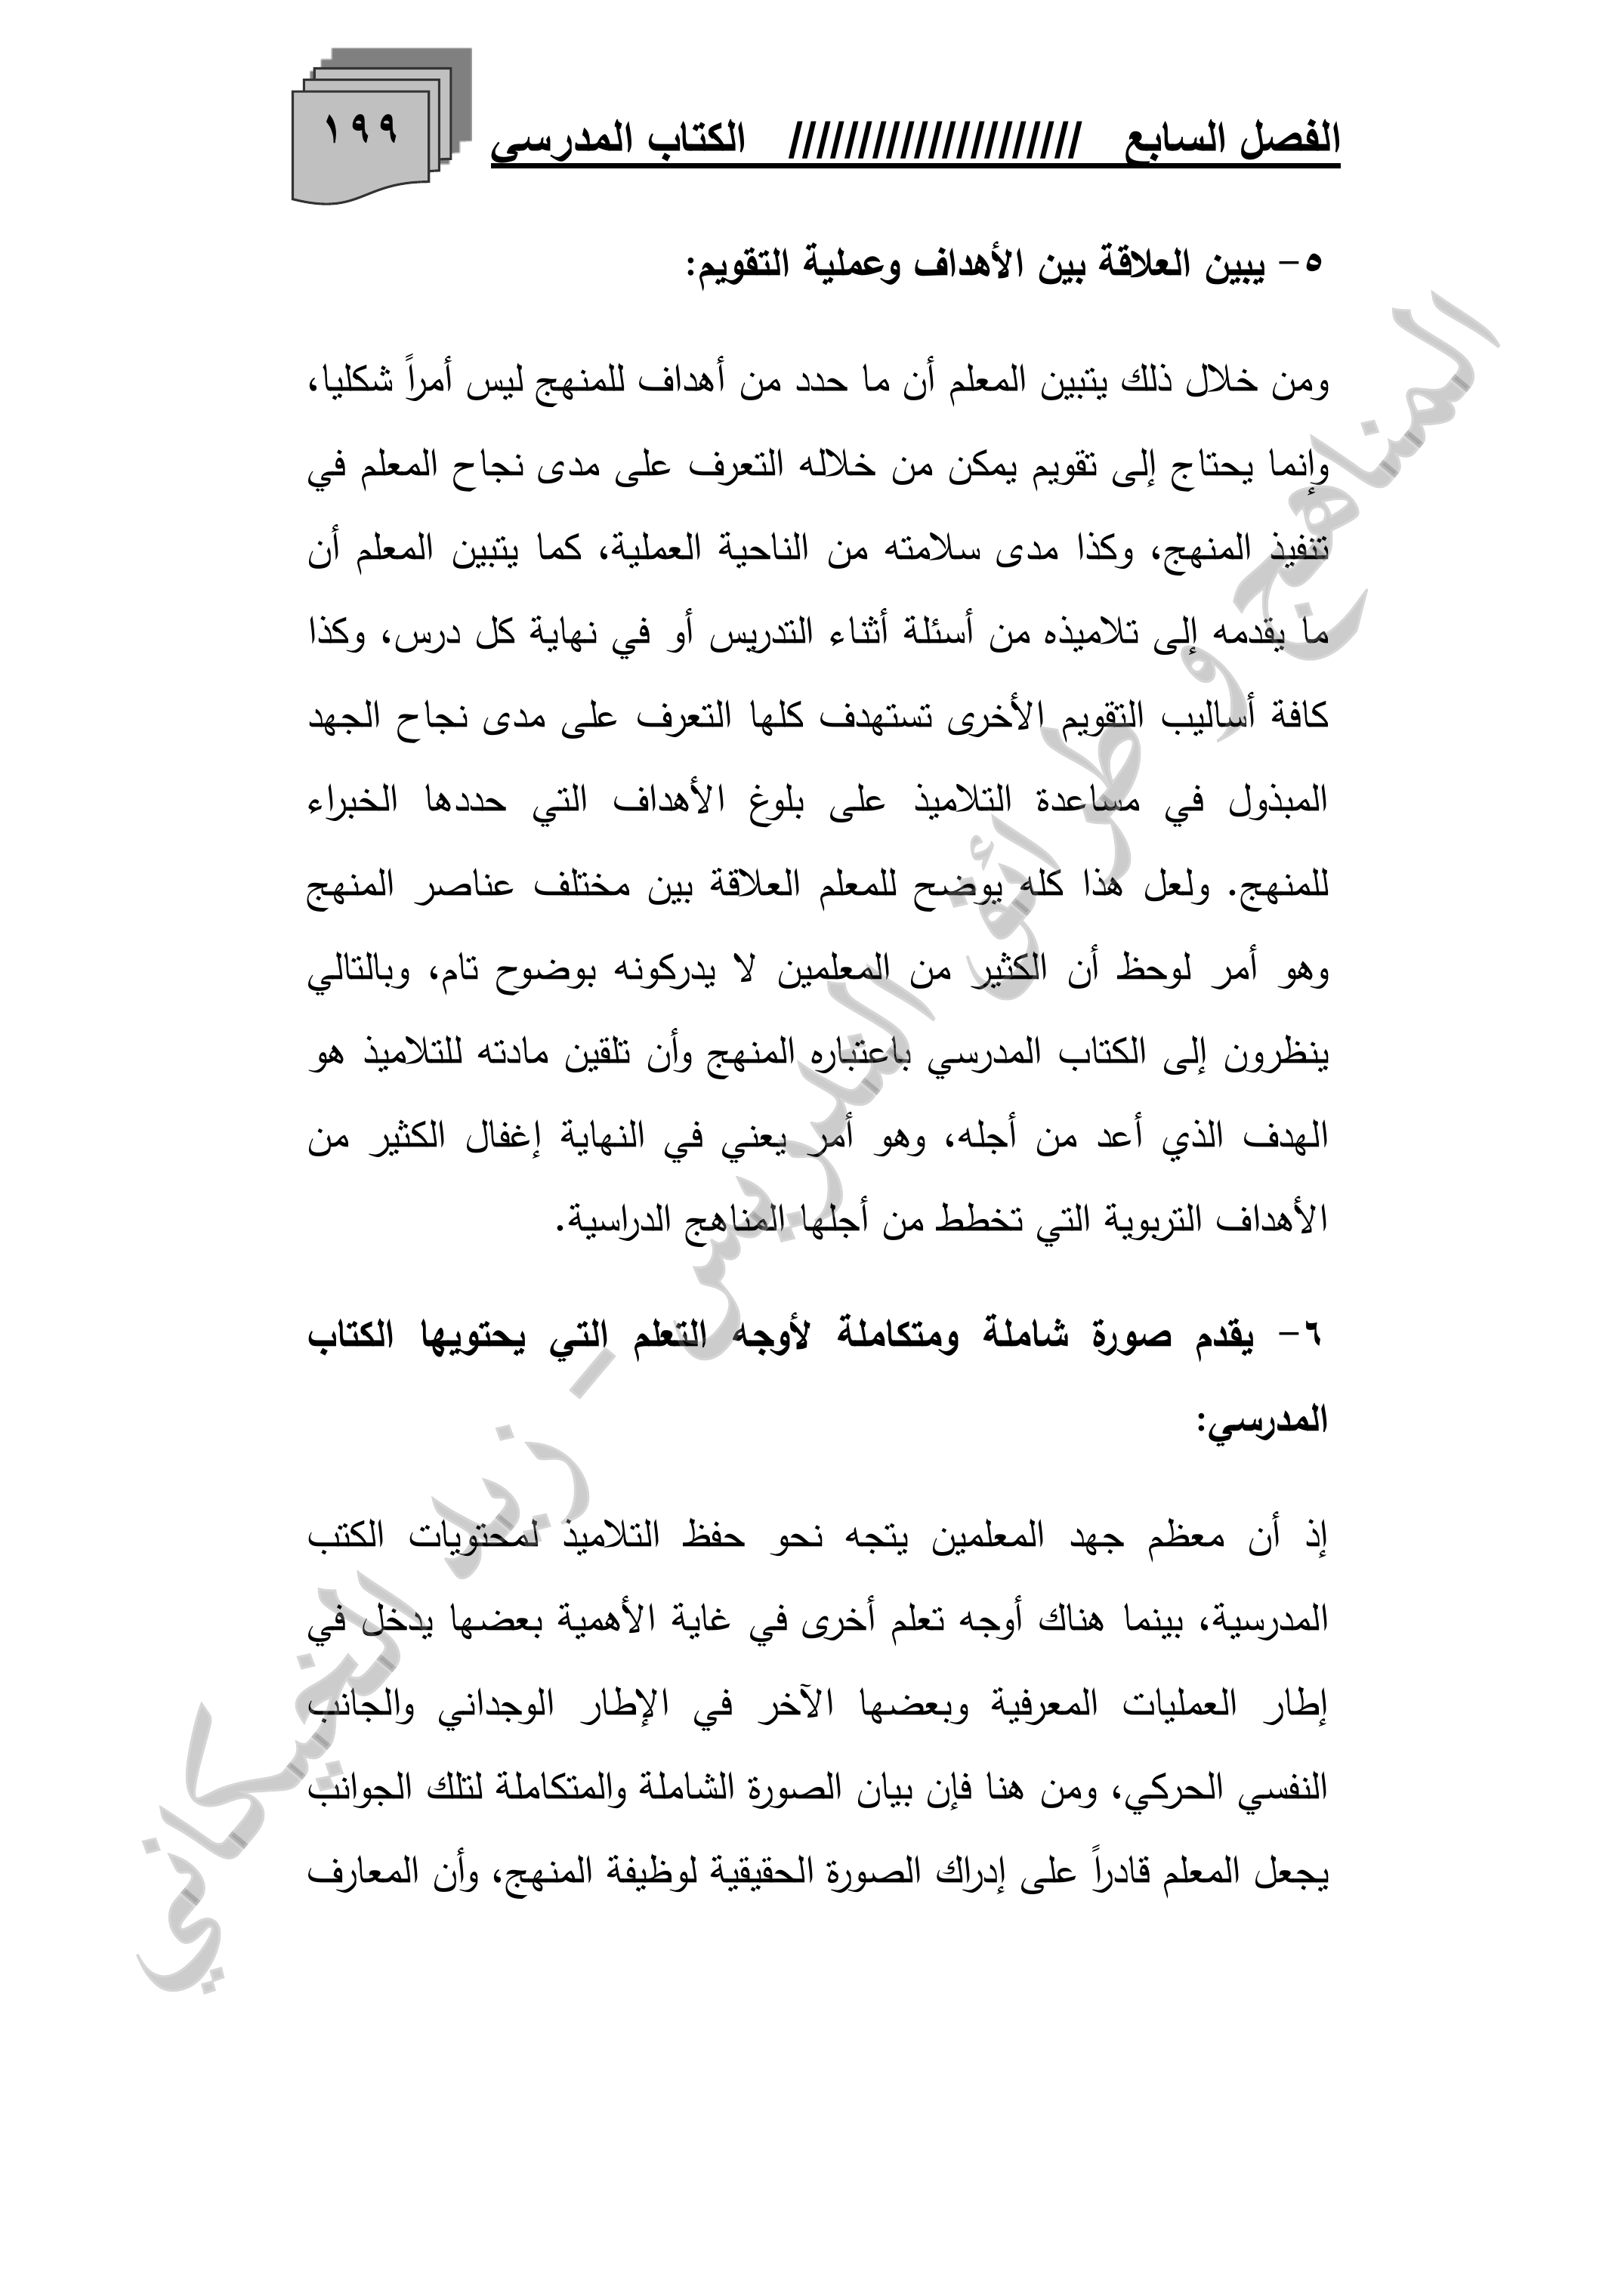 الفصل السابع ///////////////////// الكتاب المدرسي
١٩٩
٥- يبين العلاقة بين الأهداف وعملية التقويم:
ومن خلال ذلك يتبين المعلم أن ما حدد من أهداف للمنهج ليس أمراً شكليا،
وإنما يحتاج إلى تقويم يمكن من خلاله التعرف على مدى نجاح المعلم في
تنفيذ المنهج، وكذا مدى سلامته من الناحية العملية، كما يتبين المعلم أن
ما يقدمه إلى تلاميذه من أسئلة أثناء التدريس أو في نهاية كل درس، وكذا
كافة أساليب التقويم الأخرى تستهدف كلها التعرف على مدى نجاح الجهد
المبذول في مساعدة التلاميذ على بلوغ الأهداف التي حددها الخبراء
للمنهج. ولعل هذا كله يوضح للمعلم العلاقة بين مختلف عناصر المنهج
وهو أمر لوحظ أن الكثير من المعلمين لا يدركونه بوضوح تام، وبالتالي
ينظرون إلى الكتاب المدرسي باعتباره المنهج وأن تلقين مادته للتلاميذ هو
الهدف الذي أعد من أجله، وهو أمر يعني في النهاية إغفال الكثير من
الأهداف التربوية التي تخطط من أجلها المناهج الدراسية.
٦- يقدم صورة شاملة ومتكاملة لأوجه التعلم التي يحتويها الكتاب
المدرسي:
إذ أن معظم جهد المعلمين يتجه نحو حفظ التلاميذ لمحتويات الكتب
المدرسية، بينما هناك أوجه تعلم أخرى في غاية الأهمية بعضها يدخل في
إطار العمليات المعرفية وبعضها الآخر في الإطار الوجداني والجانب
النفسي الحركي، ومن هنا فإن بيان الصورة الشاملة والمتكاملة لتلك الجوانب
يجعل المعلم قادراً على إدراك الصورة الحقيقية لوظيفة المنهج، وأن المعارف
المناهج و طرائق التدريس - زيد الخيكاني